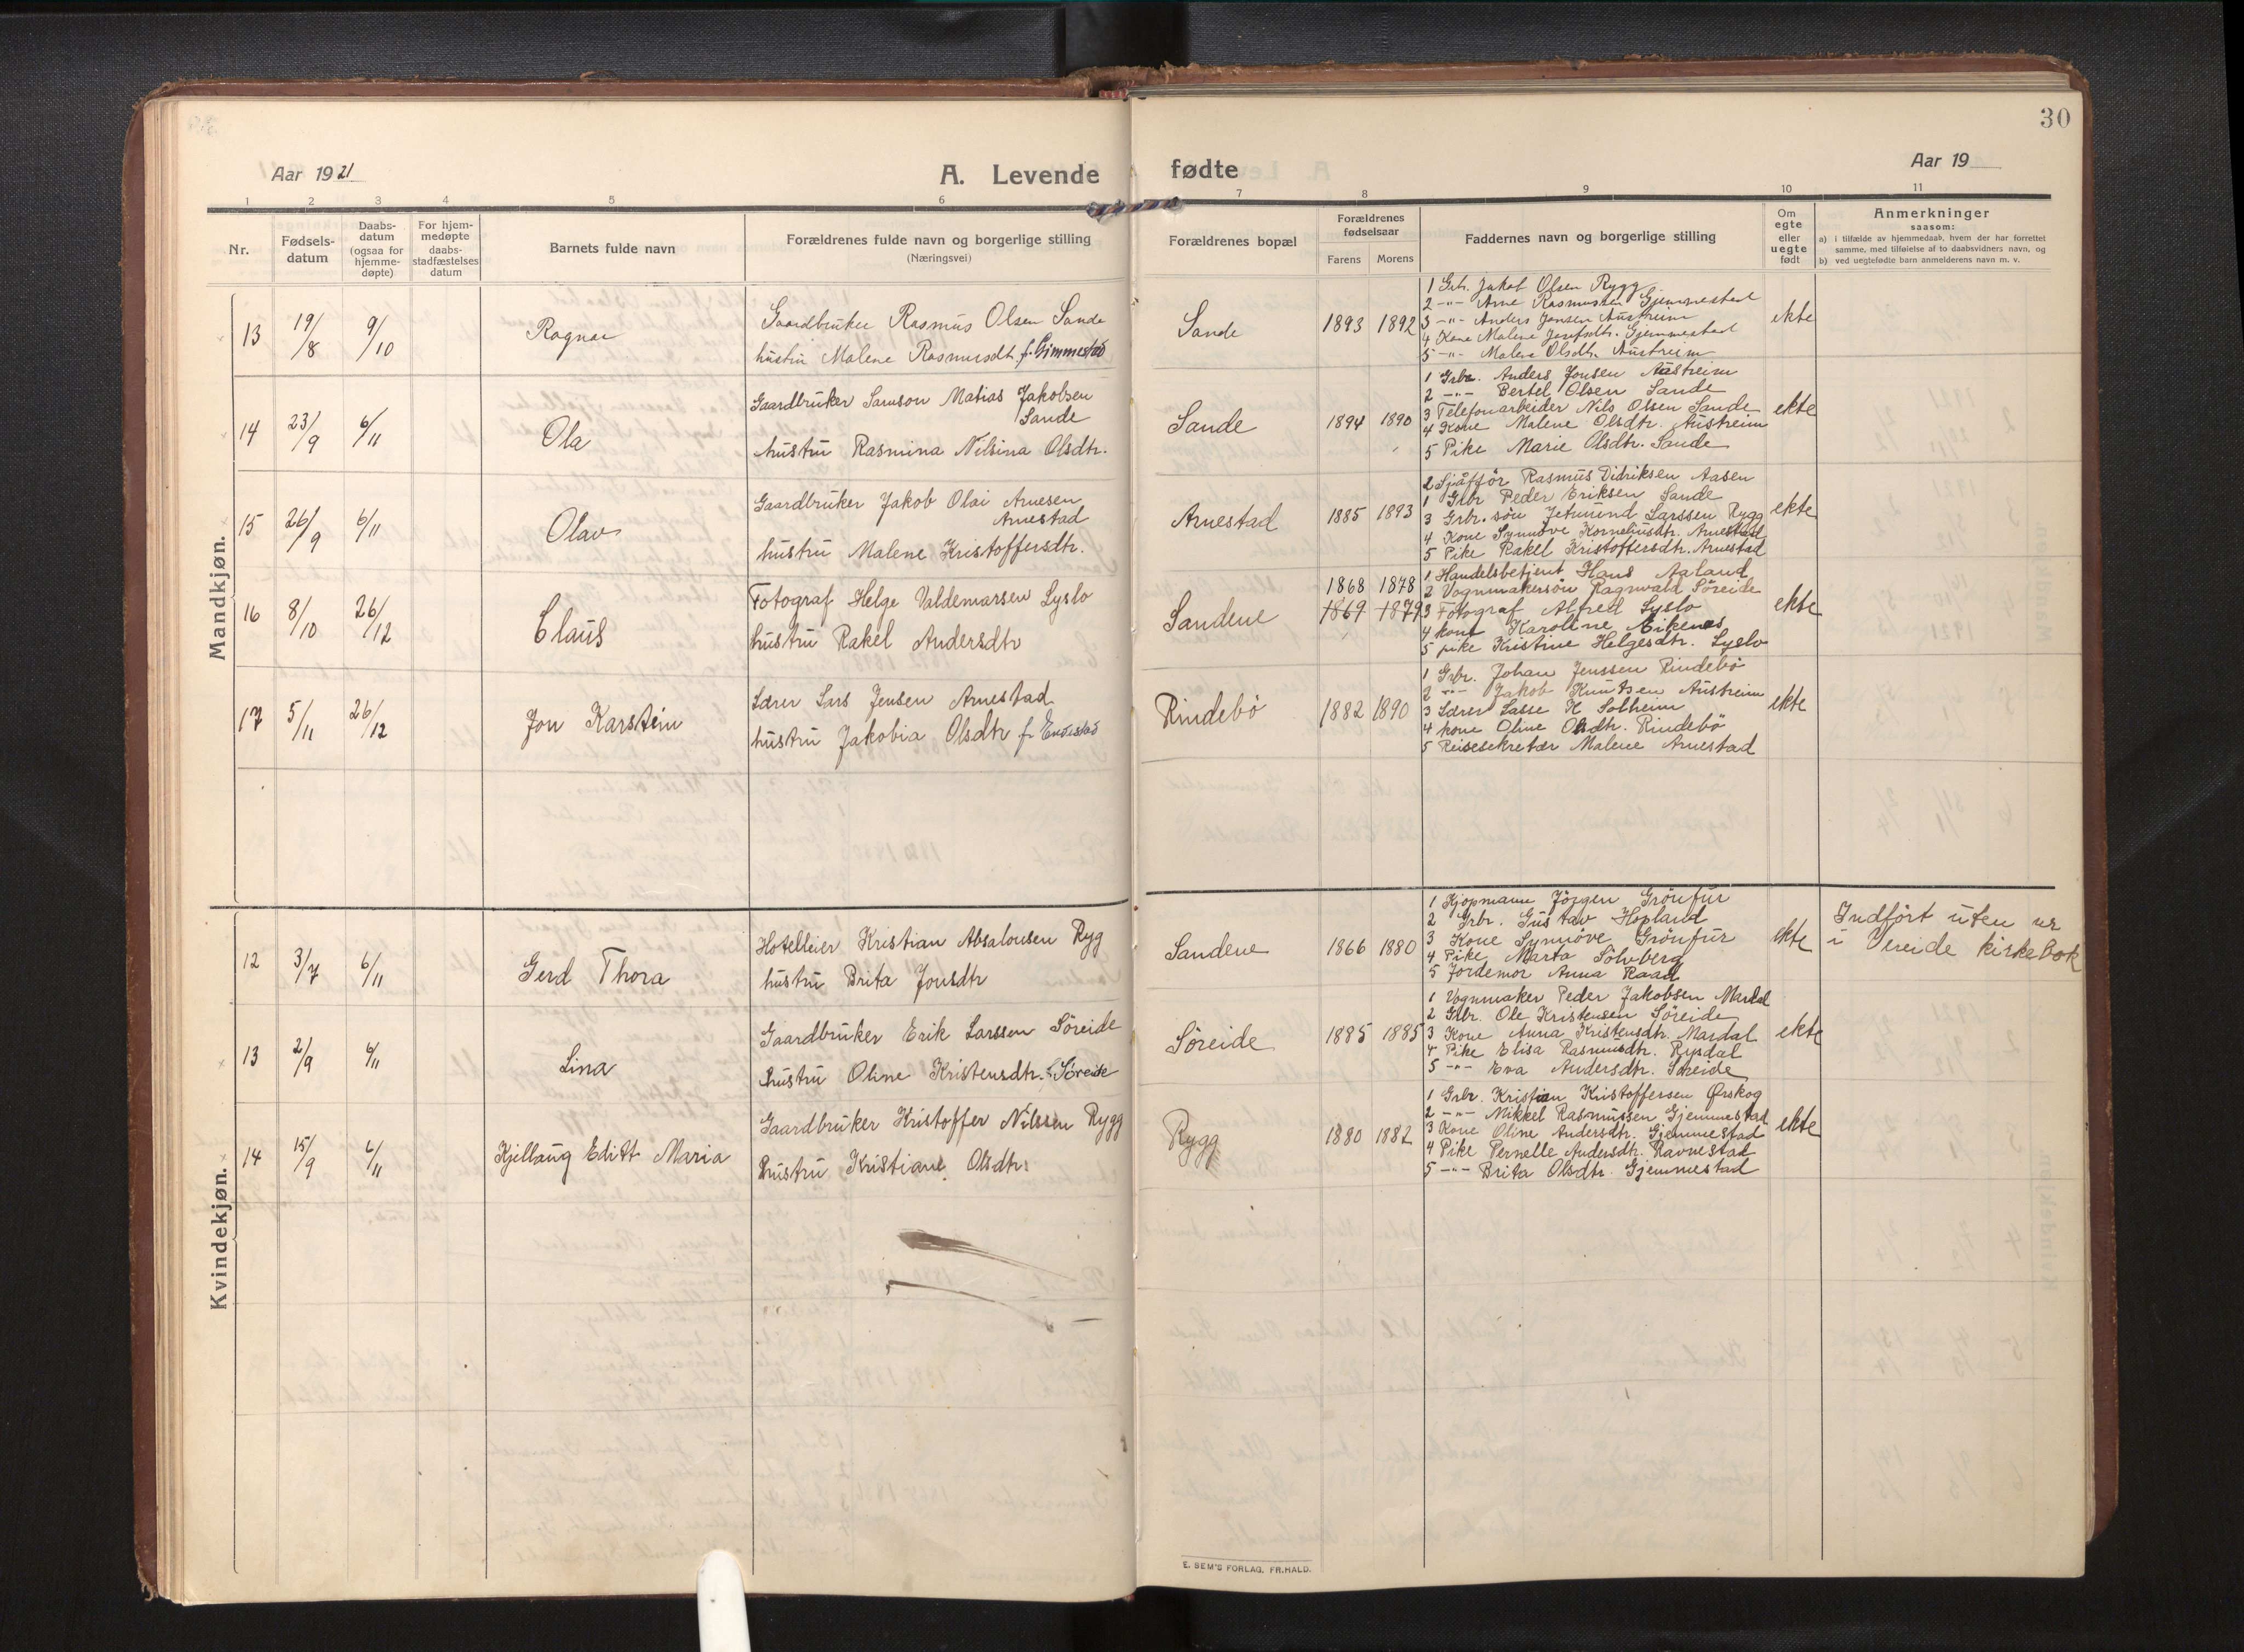 30
Aar 1921
A. Levende fødte
Aar 19
1 2 3 4 5 6 7 8 9 10 11
Nr.
Fødselsdatum
Daabsdatum (ogsaa for hjemmedøpte)
For hjemmedøpte daabsstadfæstelses datum
Barnets fulde navn
Forældrenes fulde navn og borgerlige stilling
(Næringsvei)
Forældrenes bopæl
Forældrenes fødselsaar
Farens Morens
Faddernes navn og borgerlige stilling
Om egte eller uegte født
Anmerkninger
saasom:
a) i tilfælde av hjemmedaab, hvem der har forrettet samme, med tilføielse af to daabsvidners navn, og
b) ved uegtefødte barn anmelderens navn m. v.
Mandkjøn.
13 19/8 9/10 Ragnar
Gaardbruker Rasmus Olsen Sande
hustru Malene Rasmusdtr. f. Gimmestad
Sande 1893 1892
1 Grb. Jakob Olsen Rygg
2 -"- Arne Rasmussen Gjemmestad
3 -"- Anders Jonsen Austreim
4 Kone Malene Josefsdtr. Gjemmestad
5 -"- Malene Olsdtr. Austreim
ekte
14 23/9 6/11 Ola
Gaardbruker Samson Matias Jakobsen
Sande
hustru Rasmina Nilsina Olsdtr.
Sande 1894 1890
1 Grbr. Anders Jonsen Austreim
2 -"- Bertel Olsen Sande
3 Telefonarbeider Nils Olsen Sande
4 Kone Malene Olsdtr. Austreim
5 Pike Marie Olsdtr. Sande
ekte
15 26/9 6/11 Olav
Gaardbruker Jakob Olai Arnesen
Arnestad
hustru Malene Kristoffersdtr.
Arnestad 1885 1893
2 Sjåffør Rasmus Didriksen Aasen
1 Grbr Peder Eriksen Sande
3 Grbr. søn Jetmund Larssen Rygg
4 Kone Synnøve Korneliusdtr. Arnestad
5 Pike Rakel Kristoffersdtr. Arnestad
ekte
16 8/10 26/12 Claus
Fotograf Helge Valdemarsen Lyslo
hustru Rakel Andersdtr
Sandene
1868 1878
1869 1879
1 Handelsbetjent Hans Aaland
2 Vognmakersøn Ragnvald Søreide
3 Fotograf Alfred Lyslo
4 kone Karoline Eikenes
5 pike Kristine Helgesdtr. Lyslo
ekte
17 5/11 26/12 Jon Karstein
Lærer Lars Jensen Arnestad
hustru Jakobia Olsdtr f.
Rindebö 1882 1890
1 Grbr. Johan Jenssen Rindebö
2 -"- Jakob Knutsen Austreim
3 Lærer Lasse K Solheim
4 kone Oline Olsdtr. Rindebö
5 Reisesekretær Malene Arnestad
ekte
Kvindekjøn.
12 3/7 6/11 Gerd Thora
Hotelleier Kristian Absalonsen Ryg
hustru Brita Jonsdtr
Sandene 1866 1880
1 Kjøpmann Jörgen Grönfur
2 Grbr. Gustav Hopland
3 Kone Synnöve Grönfur
4 Pike Marta Sölvberg
5 Jordemor Anna Raad
ekte
Indfört uten nr
i Vereide kirkebok
13 2/9 6/11 Lina
Gaardbruker Erik Larssen Söreide
hustru Oline Kristensdtr. f. Söreide
Söreide 1885 1885
1 Vognmaker Peder Jakobsen Mardal
2 Grbr. Ole Kristensen Söreide
3 Kone Anna Kristensdtr. Mardal
4 Pike Elisa Rasmusdtr. Rysdal
5 -"- Eva Andersdtr. Söreide
ekte
14 15/9 6/11 Kjellaug Editt Maria
Gaardbruker Kristoffer Nilssen Rygg
hustru Kristiane Olsdtr.
Rygg 1880 1882
1 Grbr. Kristian Kristoffersen Ørskog
2 -"- Mikkel Rasmussen Gjemmestad
3 Kone Oline Andersdtr. Gjemmestad
4 Pike Pernelle Andersdtr. Ravnestad
5 -"- Brita Olsdtr. Gjemmestad
ekte
E. SEM'S FORLAG, FR.HALD.